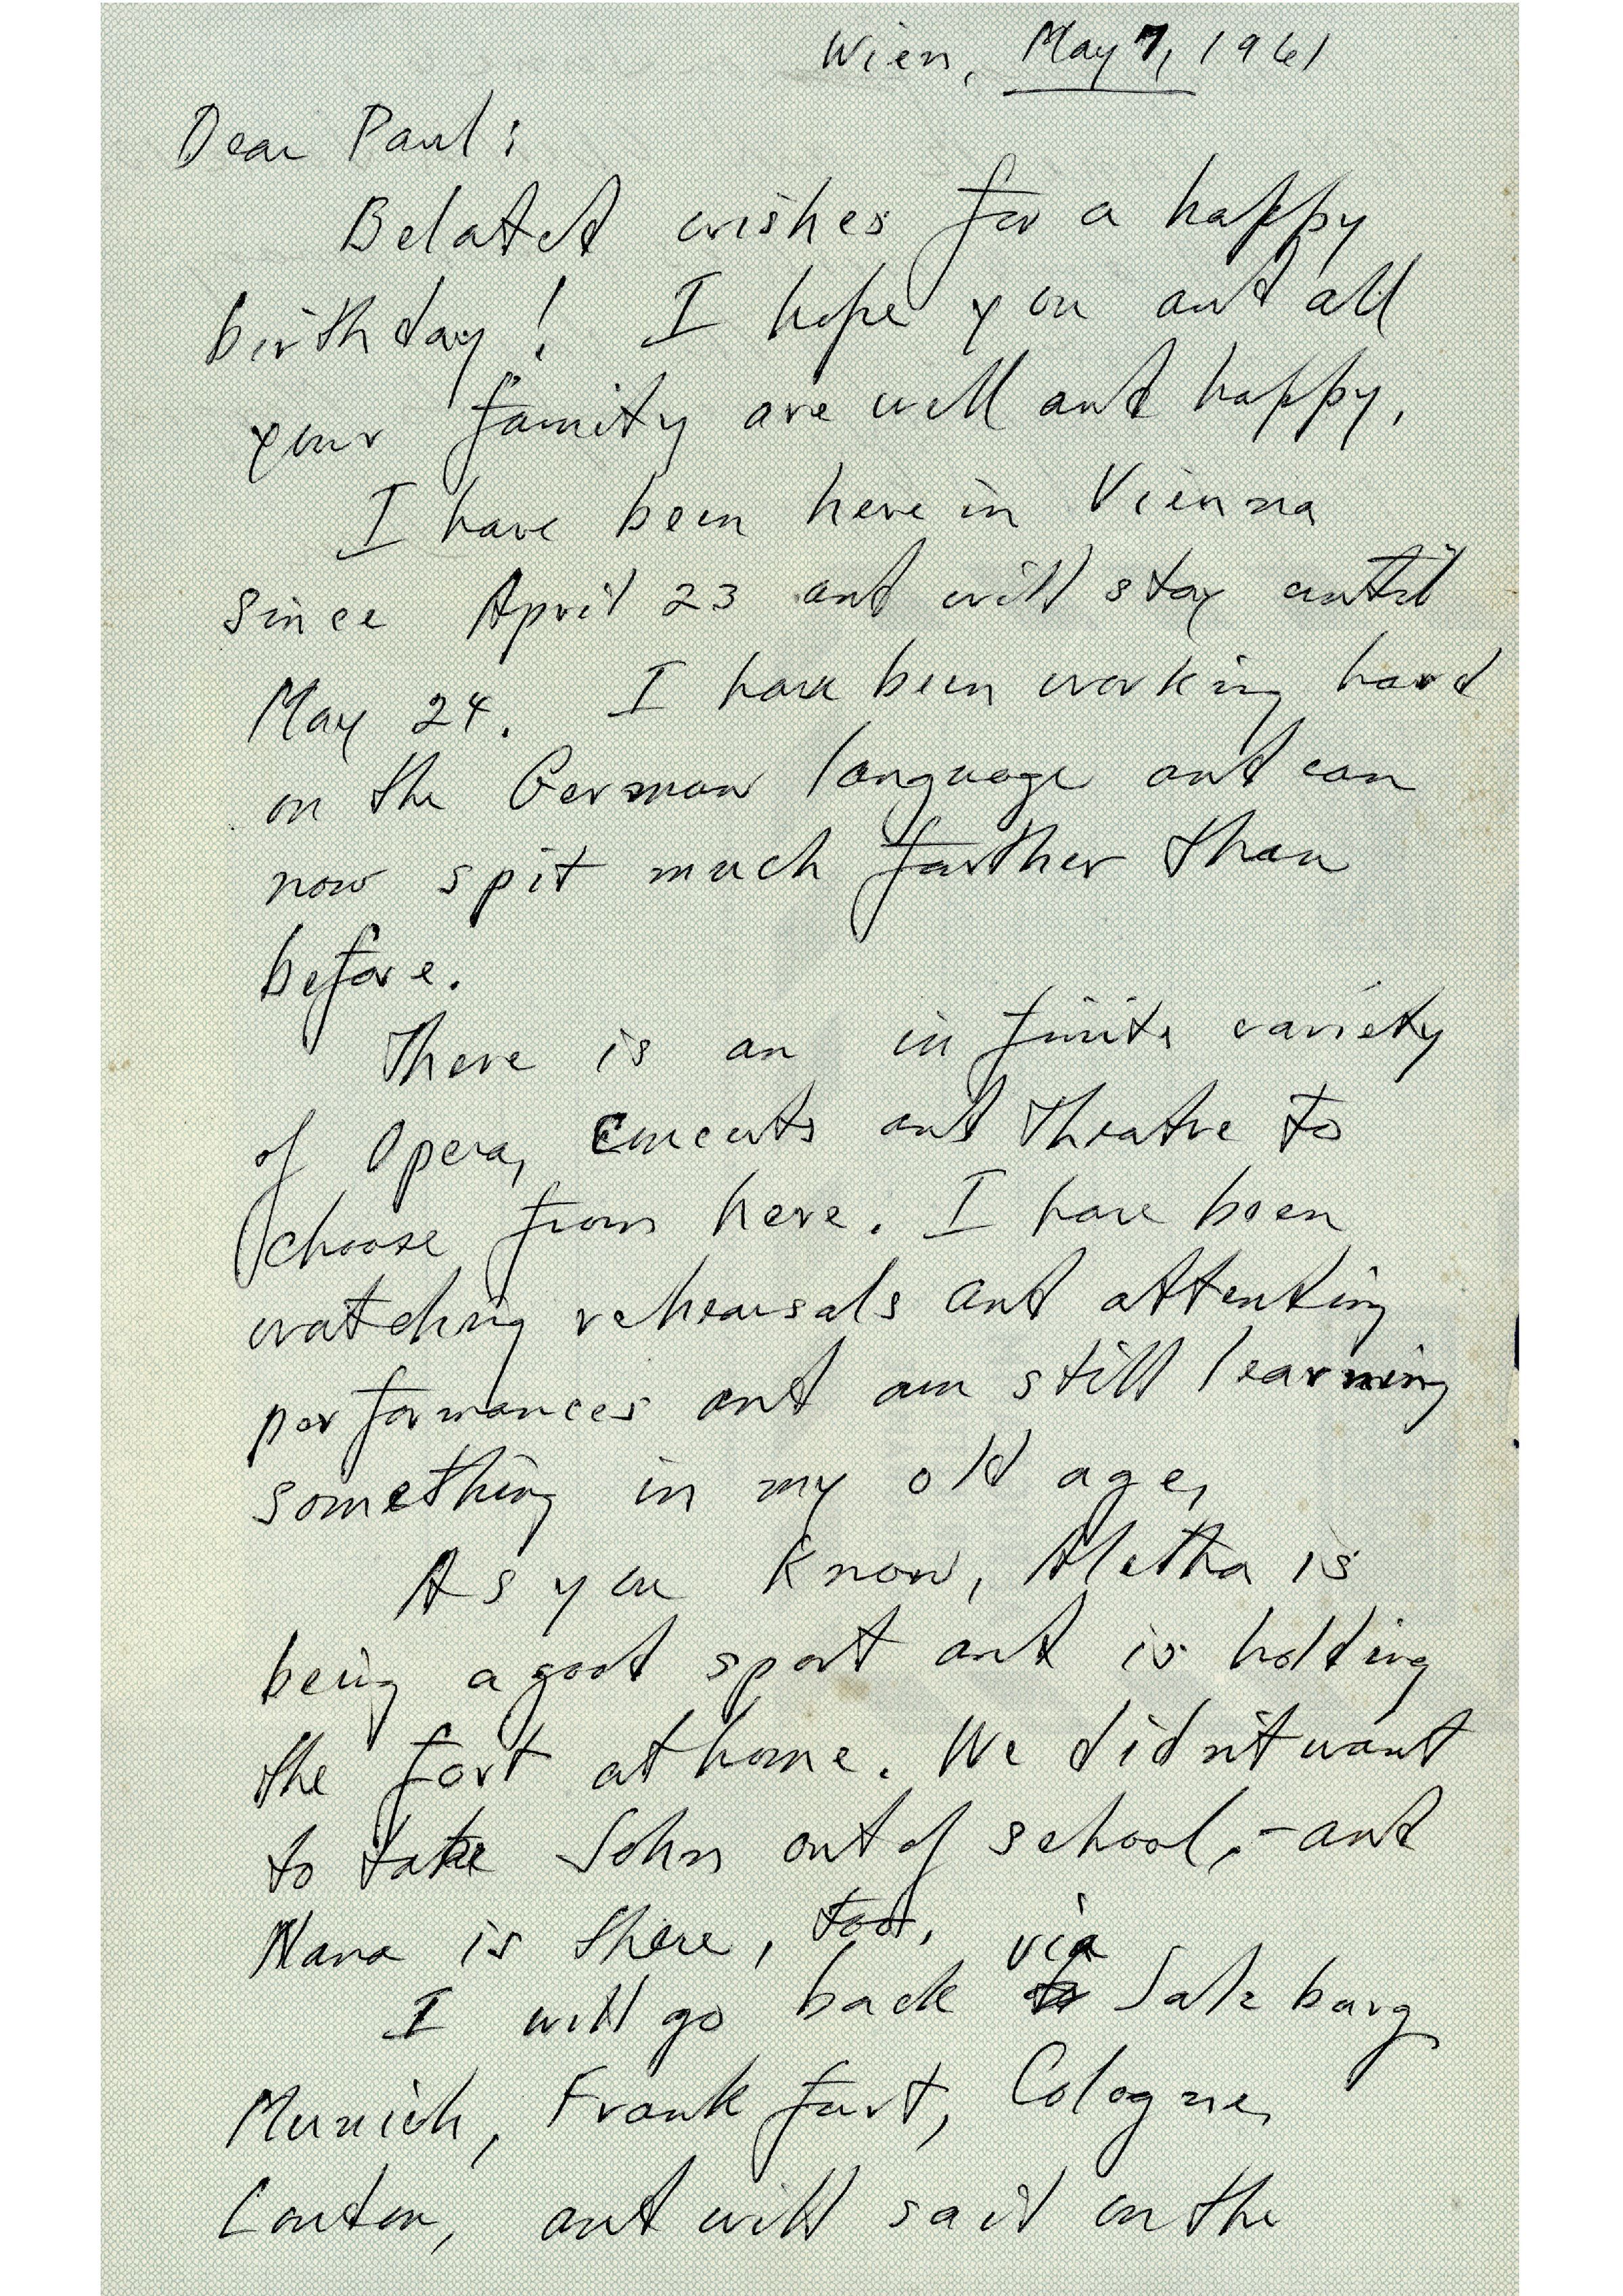 Wien, May 7, 1961
Dear Paul:
Belated wishes for a happy
birthday! I hope you and all
your family are well and happy.
I have been here in Vienna
since April 23 and will stay until
May 24. I have been working hard
on the German language and can
now spit much farther than
before.
There is an infinite variety
of Opera, Concerts and Theatre to
choose from here. I have been
watching rehearsals and attending
performances and am still learning
something in my old age.
As you know, Aletha is
being a good sport and is holding
the fort at home. We didn't want
to take John out of school, - and
Nana is there, too.
I will go back via Salzburg,
Munich, Frankfurt, Cologne,
London, and will sail on the